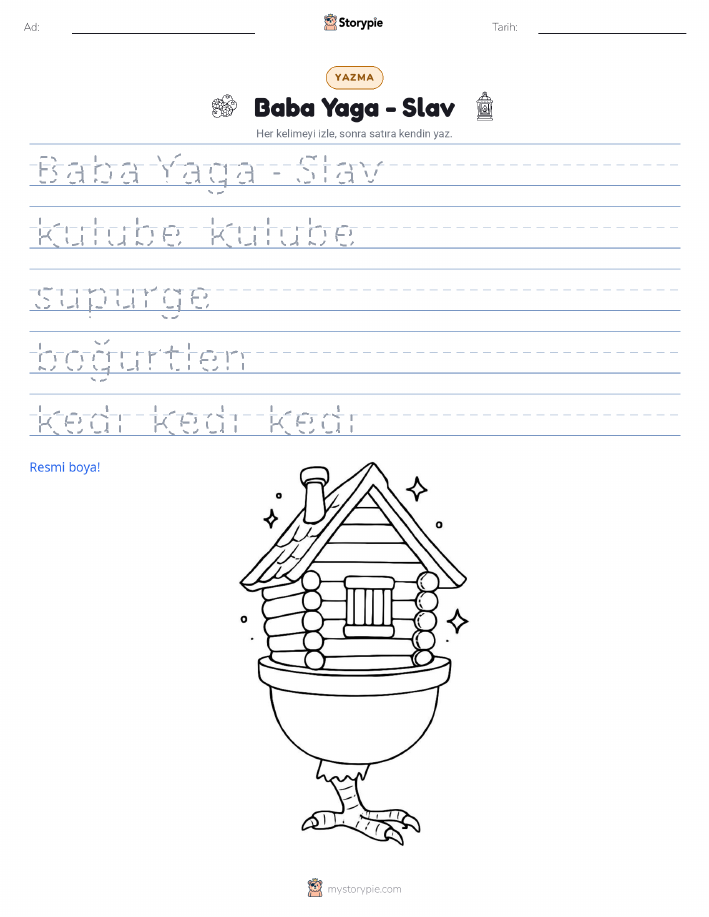 Ad:
Storypie
Tarih:
YAZMA
Baba Yaga - Slav
Her kelimeyi izle, sonra satıra kendin yaz.
Baba Yaga - Slav
kulube kulube
supurge
boğurtlen
kedı kedı kedı
Resmi boya!
mystorypie.com